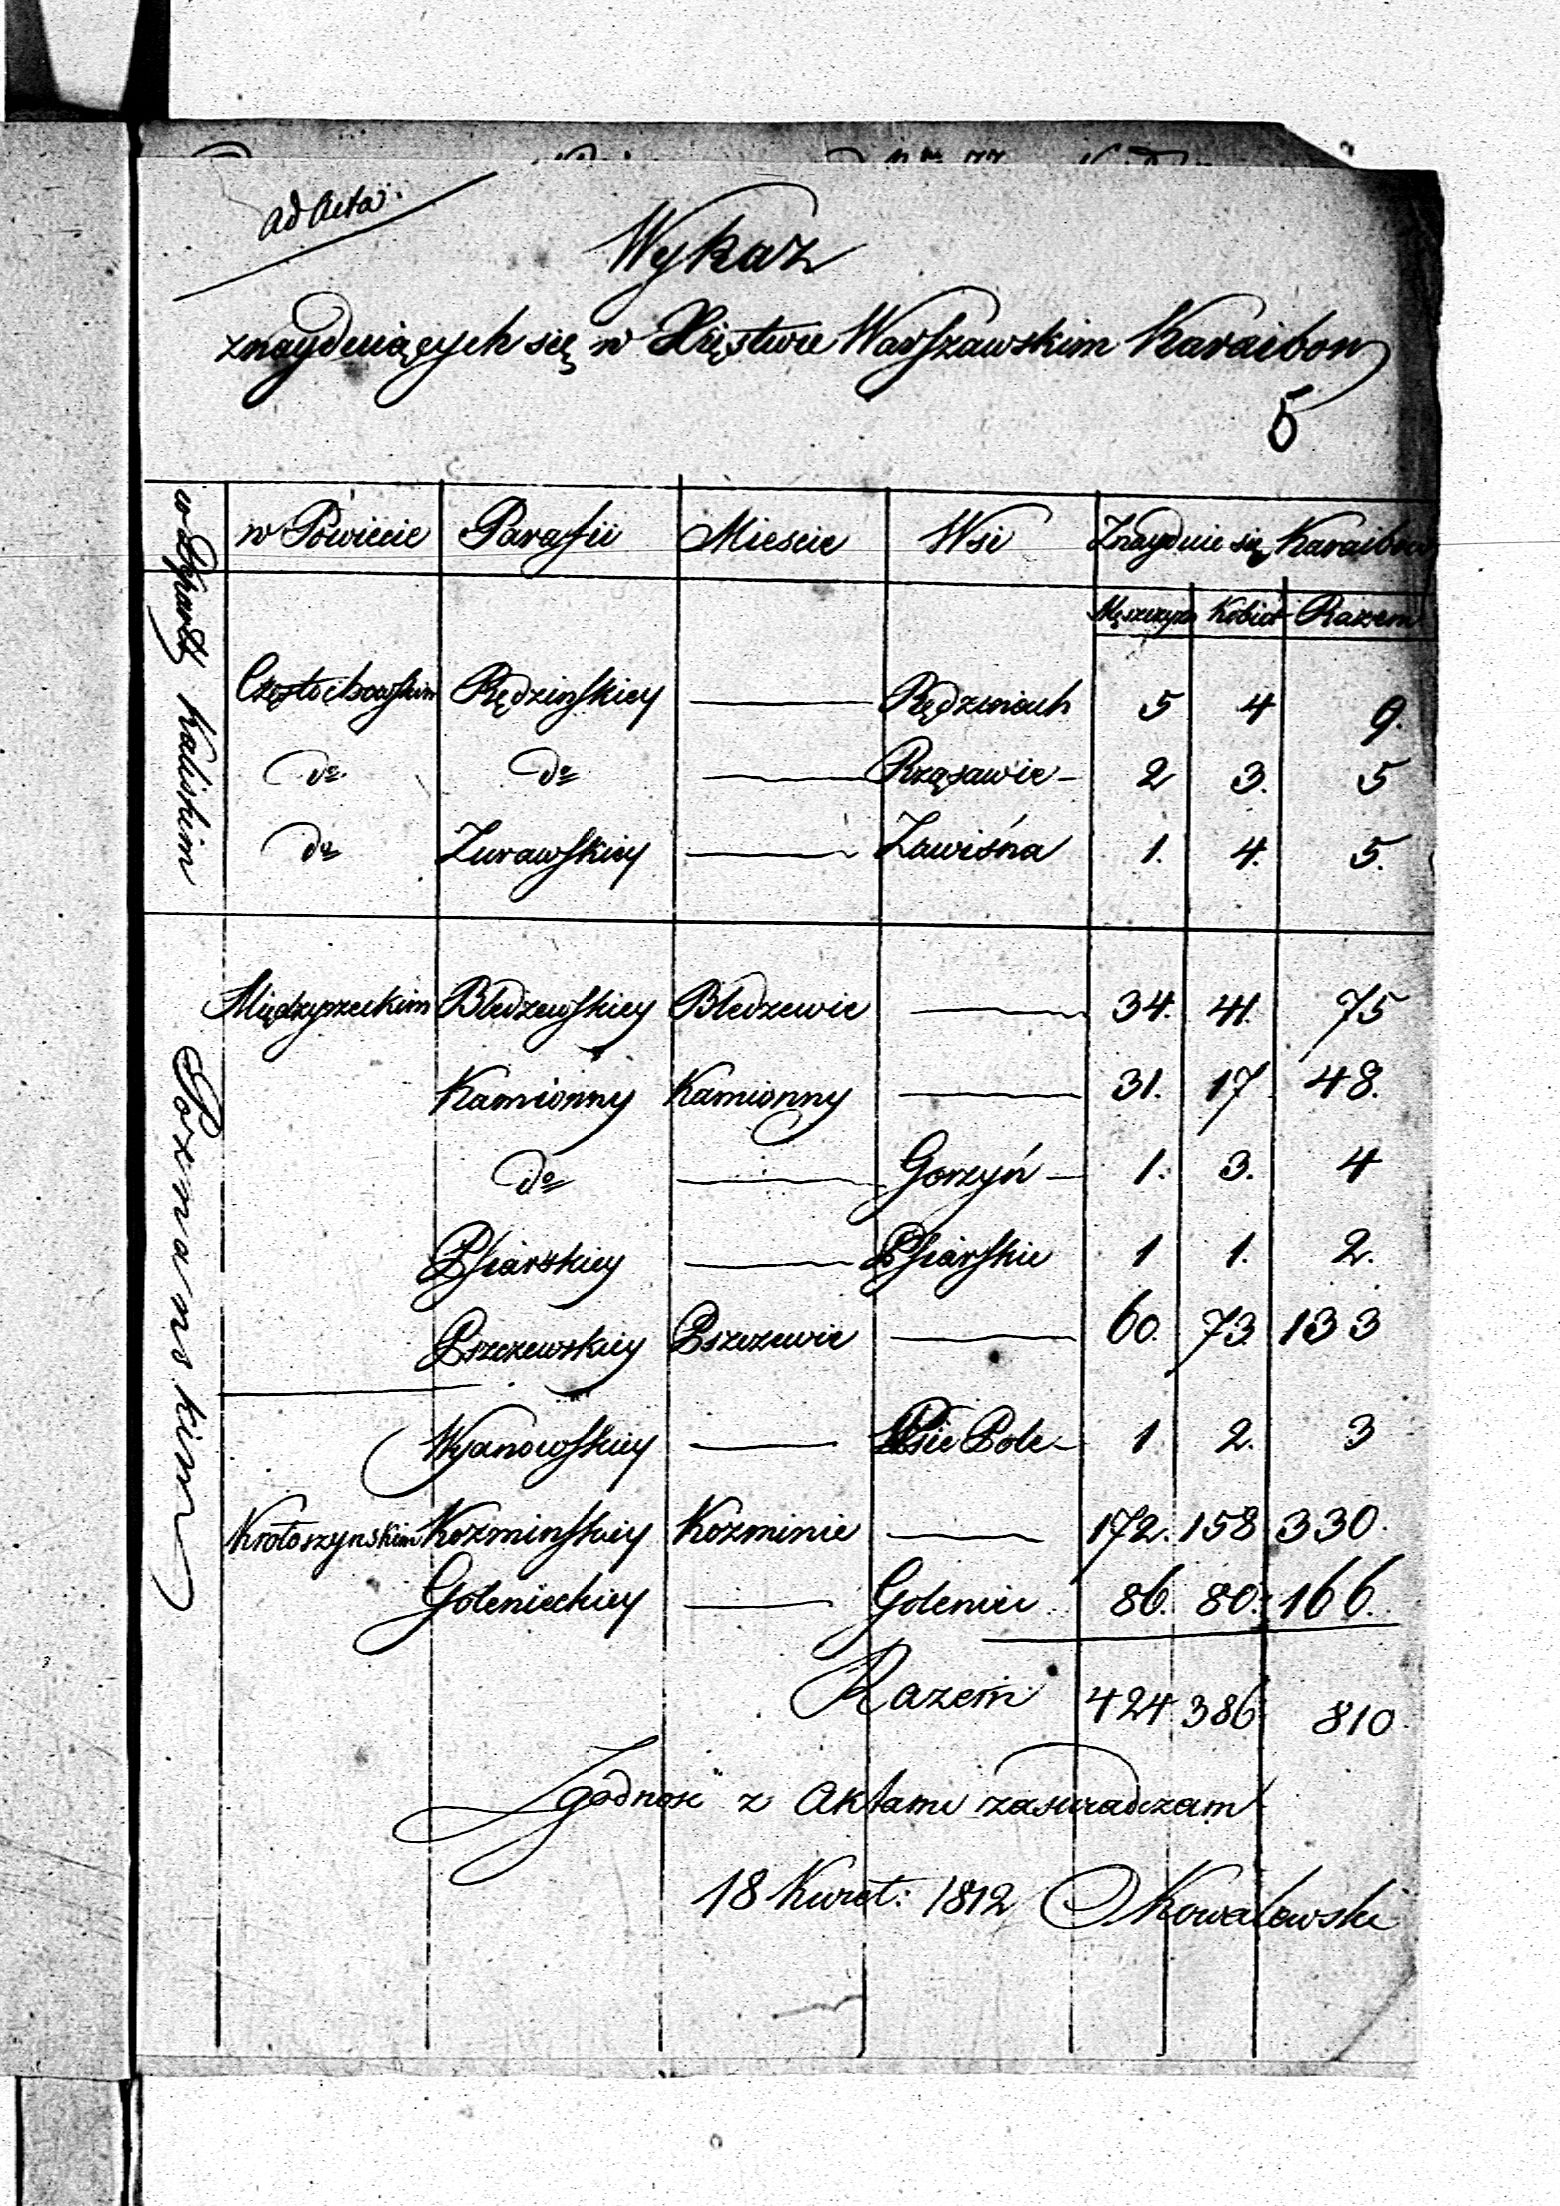 ad Acta.
Wykaz
znayduiących się w Xięstwie Warszawskim Karaibow
5
w Departt Kaliskim
w Powiecie Parafii Miescie Wsi Znayduie się Karaibow
Męszczyzn Kobiet Razem
Częstochowskim Rędzinskiey — Rędzinach 5 4 9.
do do — Rząsawie — 2 3. 5
do Zurawskiey — Zawisna 1. 4. 5.
Poznanskim
Międzyrzeckim Bledzewskiey Bledzewie — 34. 41. 75
Kamionny Kamionny — 31. 17 48.
do — Gorzyń — 1. 3. 4
Psiarskiey — Psiarskie 1 1. 2.
Pszczewskiey Pszczewie — 60. 73 133
Wyanowskiey — Psie Pole — 1 2. 3
Krotoszynskim Kozminskiey Kozminie — 172. 158 330.
Golenieckiey — Goleniec 86. 80. 166.
Razem 424 386 810.
Zgodnosc z Aktami zaswiadczam
18 Kwiet: 1812 Kowalewski